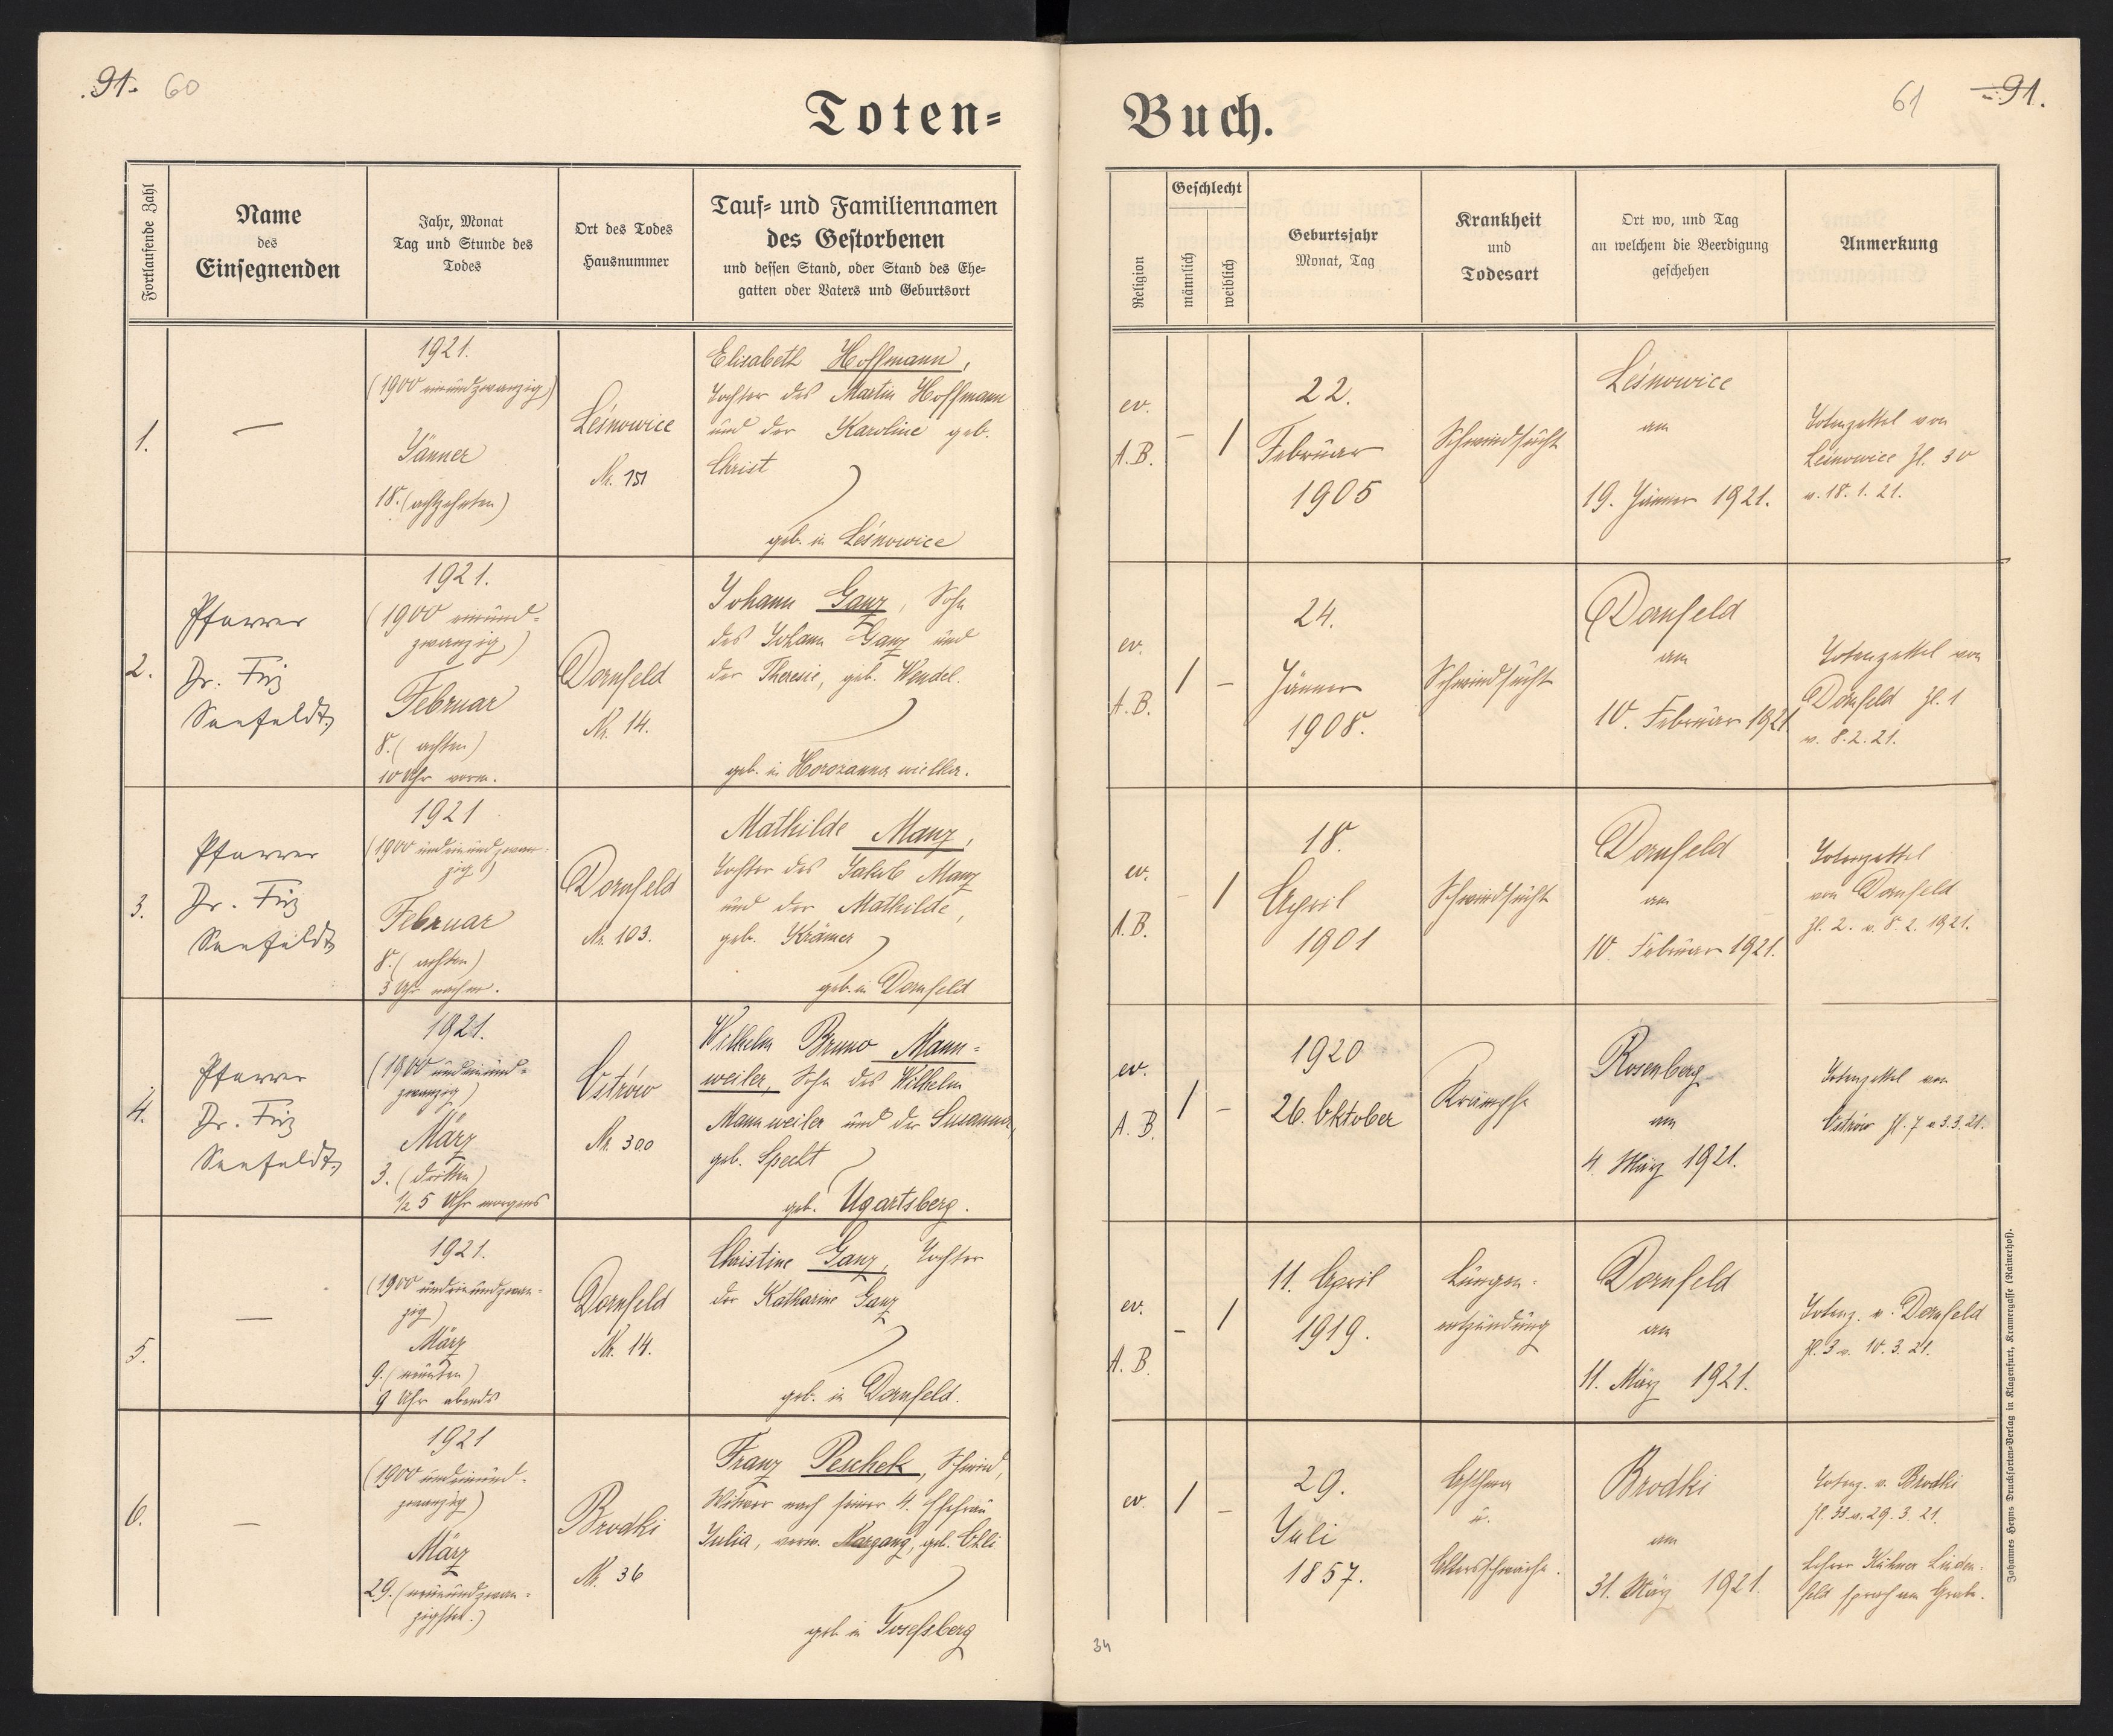 91. 60
Toten=
Fortlaufende Zahl
Name
des
Einsegnenden
Jahr, Monat
Tag und Stunde des
Todes
Ort des Todes
Hausnummer
Tauf= und Familiennamen
des Gestorbenen
und dessen Stand, oder Stand des Ehe=
gatten oder Vaters und Geburtsort
1.
—
1921.
(1900 einundzwanzig)
Jänner
18. (achtzehnten)
Leśnowice
Nr. 151
Elisabeth Hoffmann,
Tochter des Martin Hoffmann
und der Karoline geb.
Christ
geb. in Leśnowice
2.
Pfarrer
Dr. Friz
Seefeldt,
1921.
(1900 einund=
zwanzig)
Februar
8. (achten)
10 Uhr vorm.
Dornfeld
Nr. 14.
Johann Ganz, Sohn
des Johann Ganz und
der Theresie, geb. Wendel.
geb. in Horozanna wielka.
3.
Pfarrer
Dr. Friz
Seefeldt
1921
(1900 undeinundzwan=
zig)
Februar
8. (achten)
3 Uhr nachm.
Dornfeld
Nr. 103.
Mathilde Manz,
Tochter des Jakob Manz
und der Mathilde,
geb. Krämer
geb. in Dornfeld
4.
Pfarrer
Dr. Friz
Seefeldt,
1921.
(1900 undeinund=
zwanzig)
März
3. (dritten)
1/2 5 Uhr morgens
Ostrów
Nr. 300
Wilhelm Bruno Mann=
weiler, Sohn des Wilhelm
Mannweiler und der Susanna,
geb. Specht
geb. Ugartsberg.
5.
—
1921.
(1900 undeinundzwan=
zig)
März
9. (neunten)
9 Uhr abends
Dornfeld
Nr. 14.
Christine Ganz, Tochter
der Katharine Ganz
geb. in Dornfeld.
6.
—
1921
(1900 undeinund=
zwanzig)
März
29. (neunundzwan=
zigsten.)
Brodki
Nr. 36
Franz Peschek, Schmied,
Witwer nach seiner 4. Ehefrau
Julia, verw. geb.
geb. in Josefsberg
Buch.
61 91.
Religion
Geschlecht
männlich
weiblich
Geburtsjahr
Monat, Tag
Krankheit
und
Todesart
Ort wo, und Tag
an welchem die Beerdigung
geschehen
Anmerkung
ev.
A.B.
– 1
22.
Februar
1905
Schwindsucht
Leśnowice
am
19. Jänner 1921.
Totenzettel von
Leśnowice Zl. 30
v. 18. 1. 21.
ev.
A.B.
1 –
24.
Jänner
1908.
Schwindsucht
Dornfeld
am
10. Februar 1921.
Totenzettel von
Dornfeld Zl. 1
v. 8. 2. 21.
ev.
A.B.
– 1
18.
April
1901
Schwindsucht
Dornfeld
am
10. Februar 1921.
Totenzettel
von Dornfeld
Zl. 2. v. 8. 2. 1921.
ev.
A.B.
1 –
1920
26. Oktober
Krämpfe
Rosenberg
am
4. März 1921.
Totenzettel von
Ostrów Zl. 7 v. 3.3.21.
ev.
A.B.
– 1
11. April
1919.
Lungen=
entzündung
Dornfeld
am
11. März 1921.
Totenz. v. Dornfeld
Zl. 3 v. 10. 3. 21.
ev.
1 –
29.
Juli
1857.
Asthma
u.
Altersschwäche.
Brodki
am
31. März 1921.
Totenz. v. Brodki
Zl. 33 v. 29. 3. 21.
Lehrer Linden=
feld sprach am Grabe.
34
Johannes Heyns Druchsorten=Verlag in Klagenfurt, Kramergasse (Rainerhof).